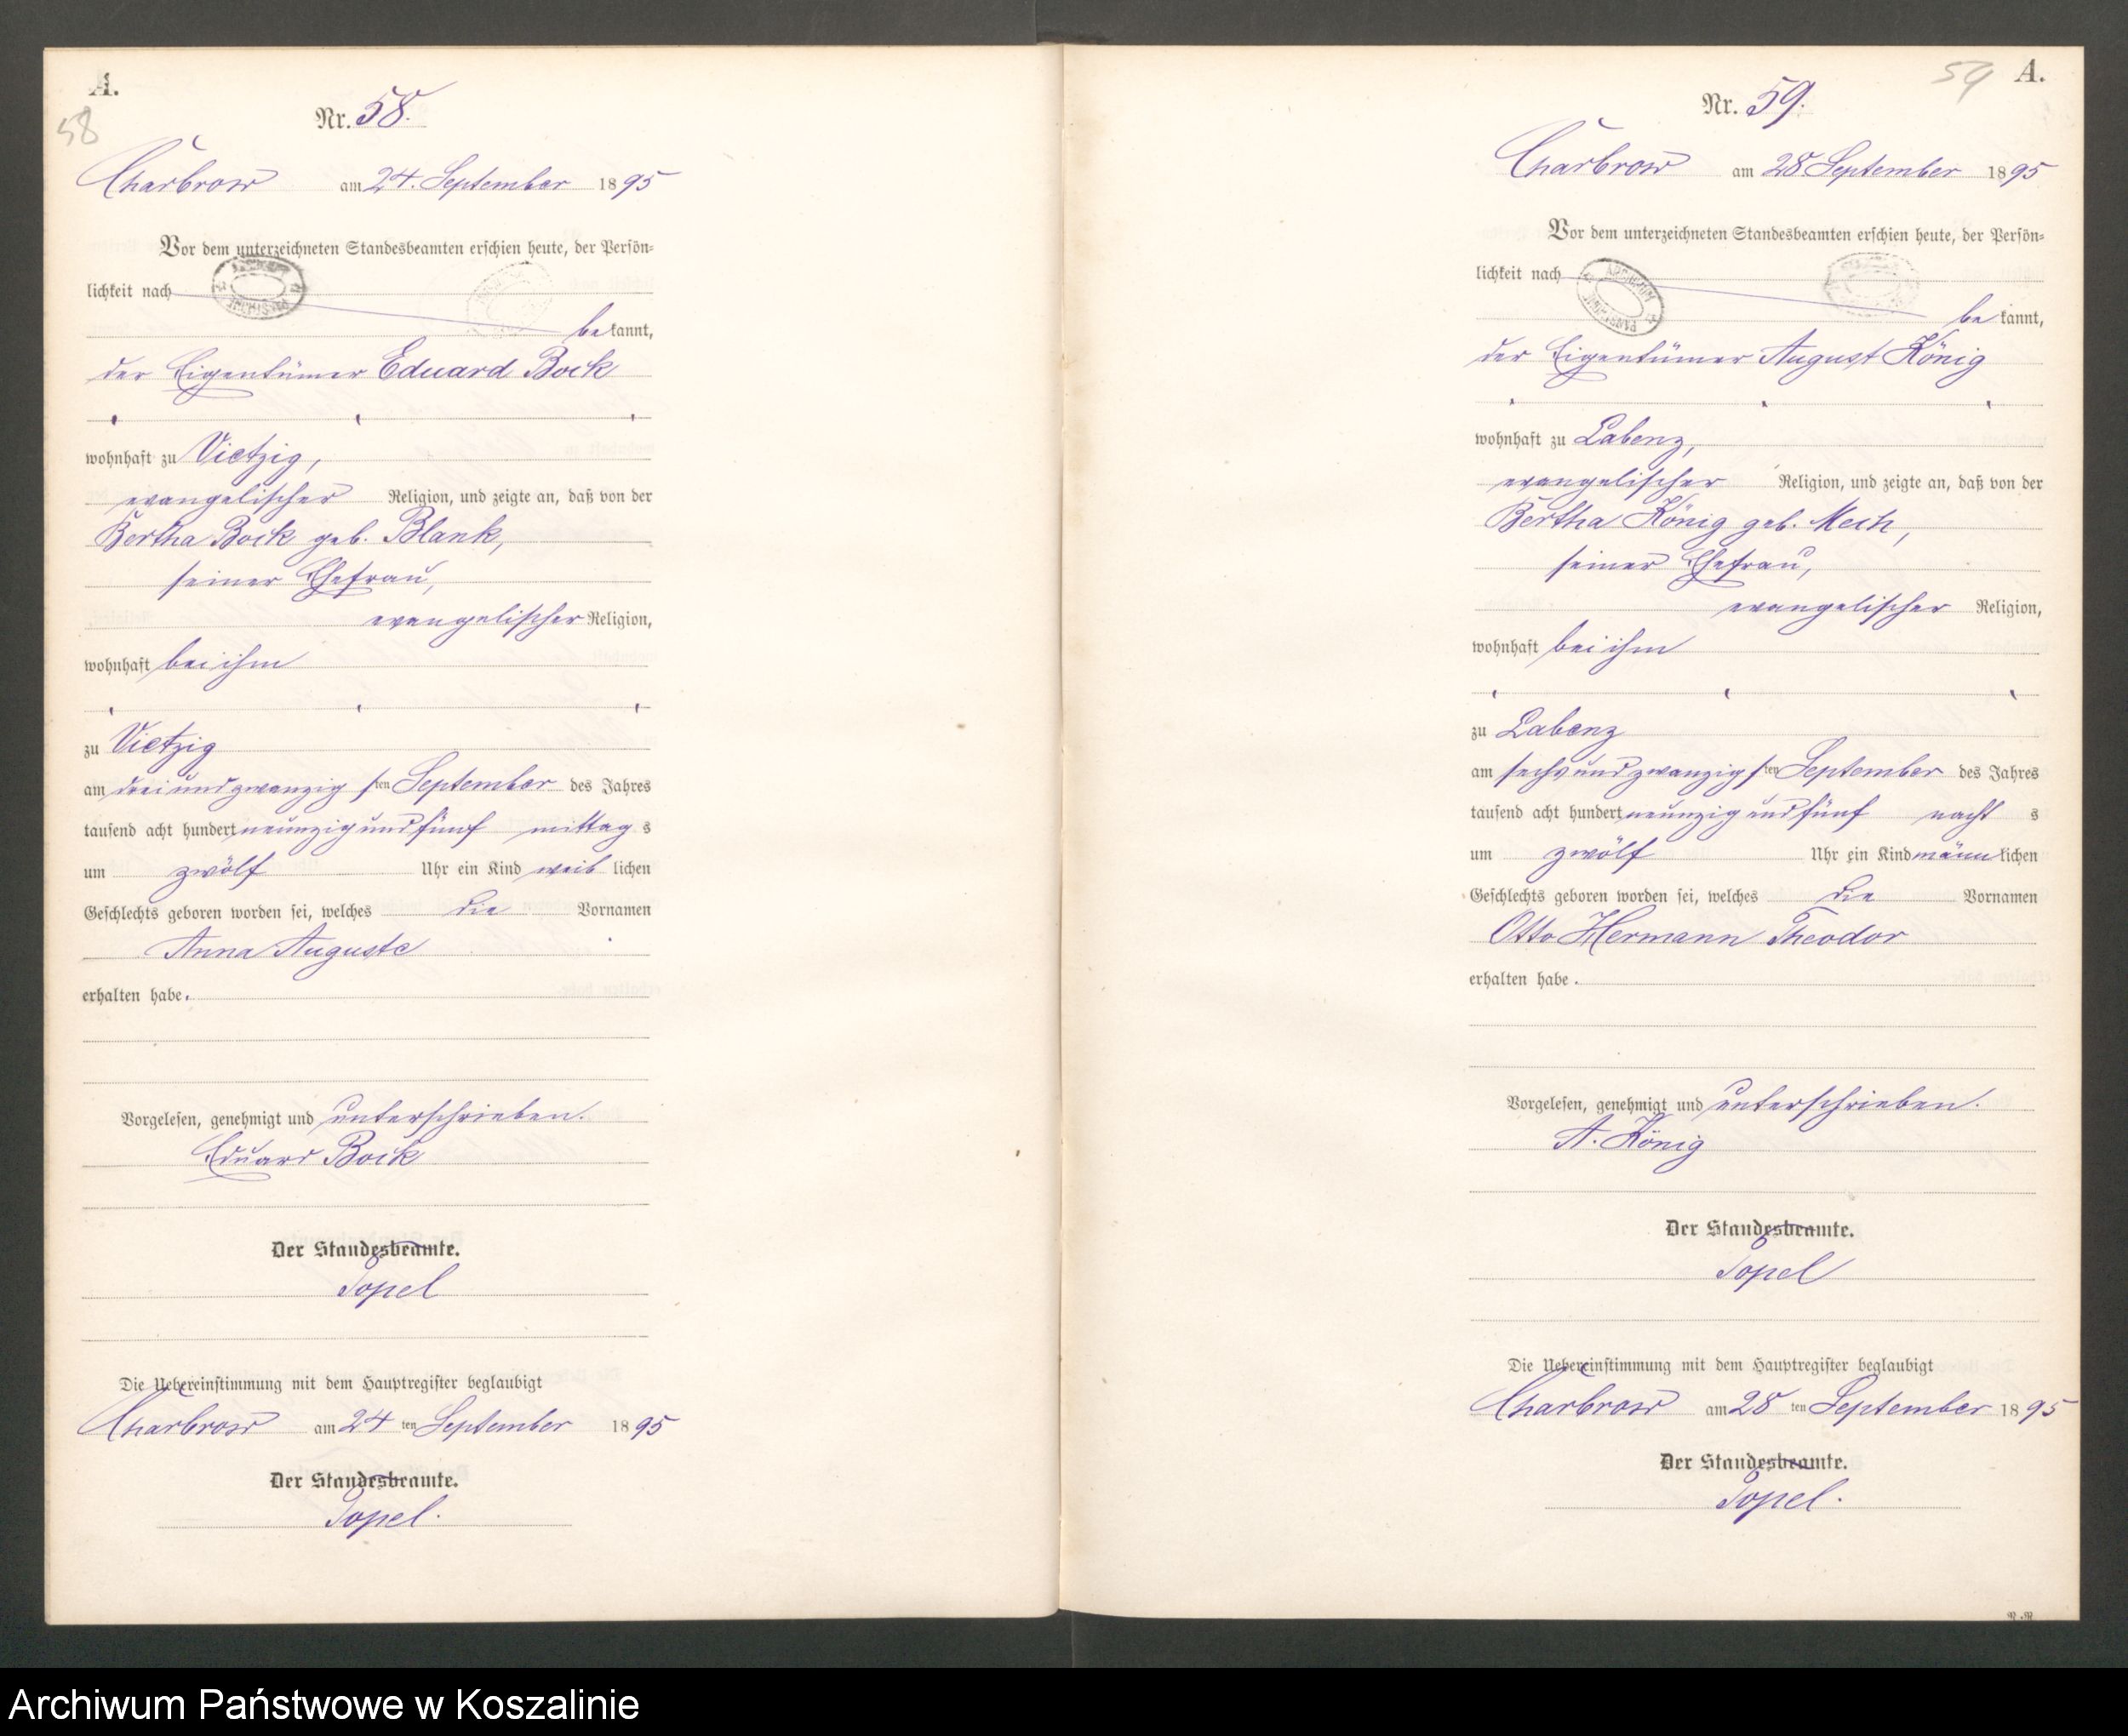 A.
58
Nr. 58.
Charbrow am 24. September 1895
Vor dem unterzeichneten Standesbeamten erschien heute, der Persön-
lichkeit nach
be kannt,
der Eigentümer Eduard Bock
wohnhaft zu Vietzig,
evangelischer Religion, und zeigte an, daß von der
Bertha Bock geb. Blank,
seiner Ehefrau,
evangelischer Religion,
wohnhaft bei ihm
zu Vietzig
am drei und zwanzigsten September des Jahres
tausend acht hundert neunzig und fünf mittags
um zwölf Uhr ein Kind weiblichen
Geschlechts geboren worden sei, welches die Vornamen
Anna Auguste
erhalten habe.
Vorgelesen, genehmigt und unterschrieben.
Eduard Bock
Der Standesbeamte.
Topel
Die Uebereinstimmung mit dem Hauptregister beglaubigt
Charbrow am 24ten September 1895
Der Standesbeamte.
Topel.
59 A.
Nr. 59.
Charbrow am 28 September 1895
Vor dem unterzeichneten Standesbeamten erschien heute, der Persön-
lichkeit nach
be kannt,
der Eigentümer August König
wohnhaft zu Labenz,
evangelischer Religion, und zeigte an, daß von der
Bertha König geb. Mech,
seiner Ehefrau,
evangelischer Religion,
wohnhaft bei ihm
zu Labenz
am sechs und zwanzigsten September des Jahres
tausend acht hundert neunzig und fünf nachts
um zwölf Uhr ein Kind männlichen
Geschlechts geboren worden sei, welches die Vornamen
Otto Hermann Theodor
erhalten habe.
Vorgelesen, genehmigt und unterschrieben.
A. König
Der Standesbeamte.
Topel
Die Uebereinstimmung mit dem Hauptregister beglaubigt
Charbrow am 28ten September 1895
Der Standesbeamte.
Topel.
Archiwum Państwowe w Koszalinie